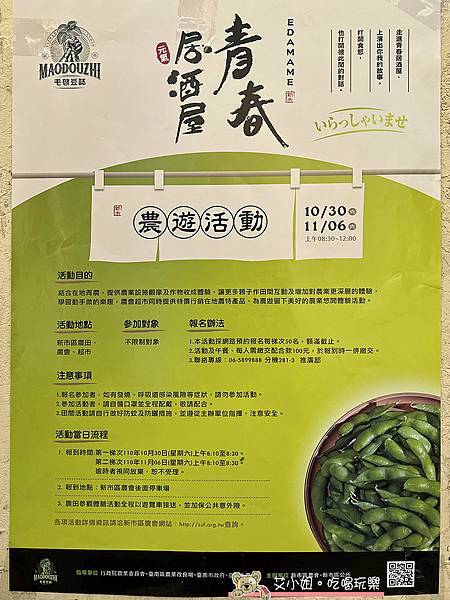 MAODOUZHI
毛豆誌
元氣
青春
居酒屋
EDAMAME
走進青春居酒屋,
上演出你我的故事。
打開食慾,
也打開彼此間的對話。
いらっしゃいませ
農遊活動
10/30
11/06
上午08:30~12:00
活動目的
結合在地青農,提供農業設施觀摩及作物收成體驗,讓更多親子作田間互動及增加對農業更深層的體驗,
學習動手做的樂趣,農會超市同時提供特價行銷在地農特產品,為農遊留下美好的農業悠閒體驗活動。
活動地點 參加對象 報名辦法
新市區農田、 不限制對象 1.本活動採網路預約報名每梯次50名,額滿截止。
農會、超市 2.活動及午餐、每人需繳交配合款100元,於報到時一併繳交。
3.聯絡專線:06-5899888 分機281-3 推廣部
注意事項
1.報名參加者,如有發燒、呼吸道感染風險等症狀,請勿參加活動。
2.參加活動者,請自備口罩並全程配戴,敬請配合。
3.田間活動請自行做好防蚊及防曬措施,並遵從主辦單位指揮,注意安全。
活動當日流程
1. 報到時間:第一梯次110年10月30日(星期六)上午8:10至8:30。
第二梯次110年11月06日(星期六)上午8:10至8:30。
逾時者視同放棄,恕不受理。
2. 報到地點:新市區農會後面停車場
3. 農田參觀體驗活動全程以遊覽車接送,並加保公共意外險。
各項活動詳情資訊請洽新市區農會網站:http://ssf.org.tw查詢。
MAODOUZHI
指導單位 行政院農業委員會、臺南區農業改良場、臺南市政府、
艾小姐。吃喝玩樂